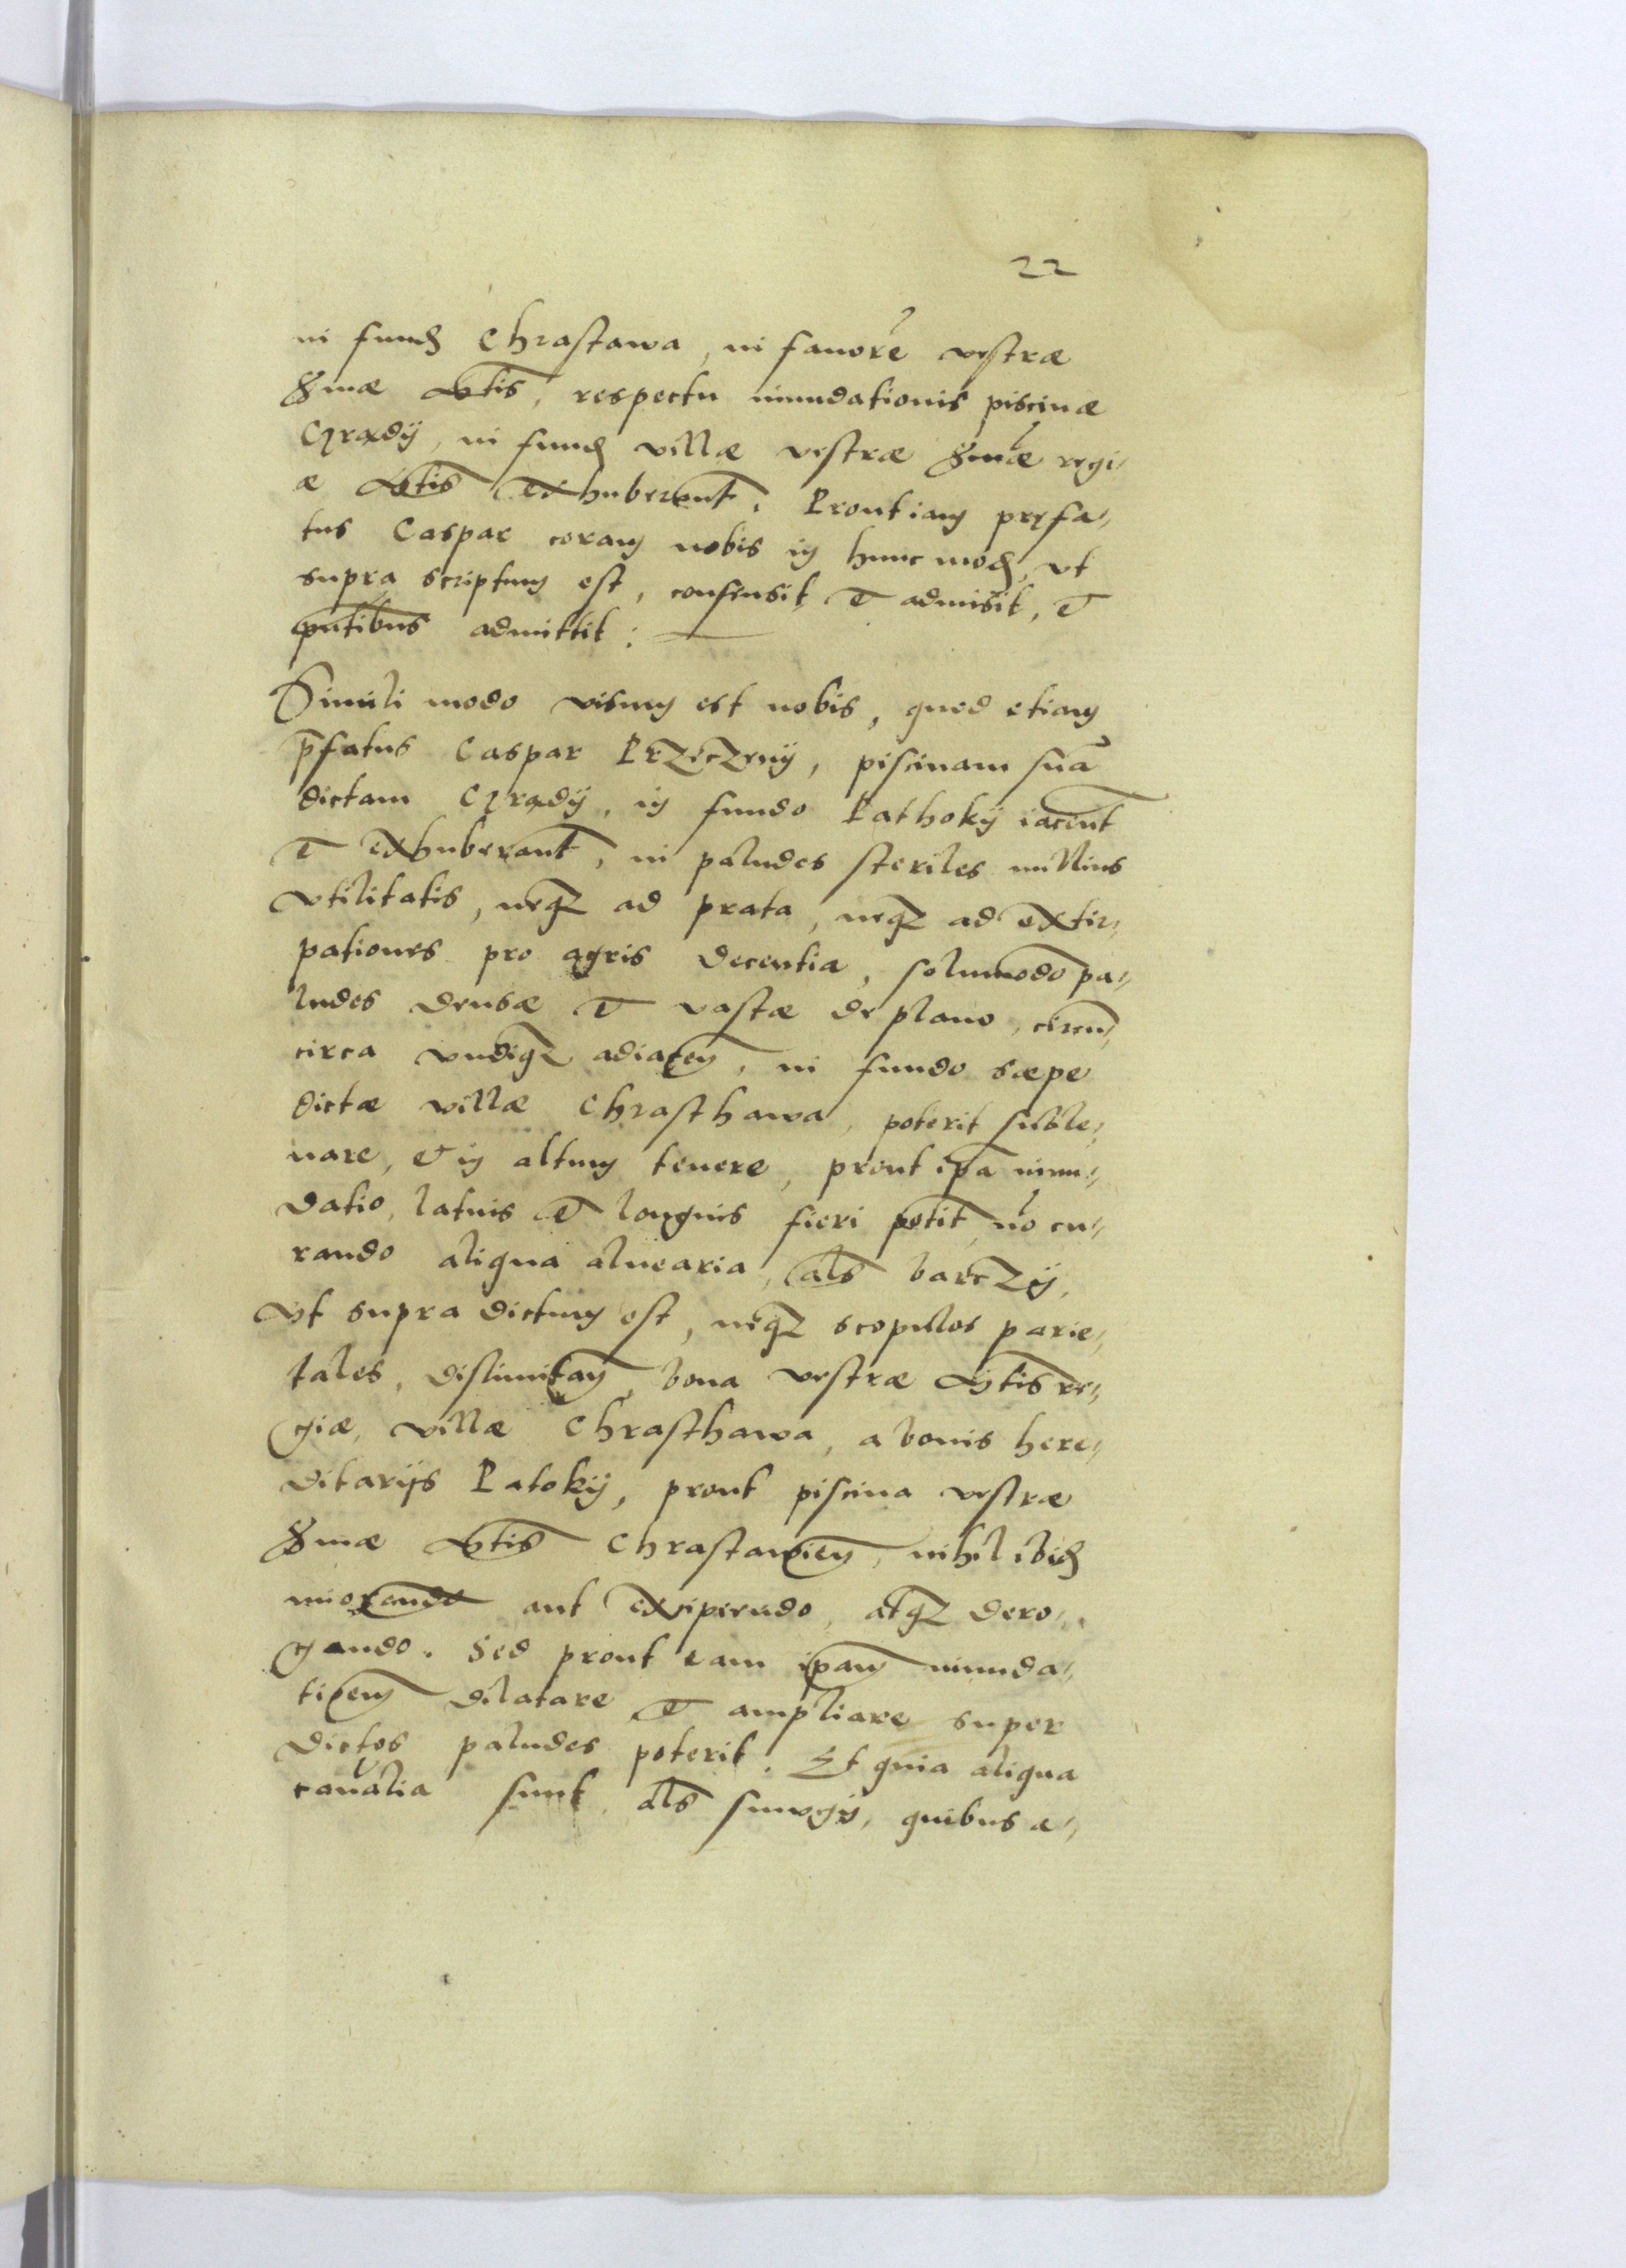 22
in fundũ Chrastawa, in fauorẽ vestræ
Smæ Mtis, respectu inundationis piscinæ
Czrądÿ, in fundũ villæ vestræ Smæ regi⸗
æ Mtis exhuberant. Prout iam pręfa⸗
tus Caspar coram nobis in hunc modũ, vt
supra scriptum est, consensit et admisit, et
pntibus admittit:
Simili modo visum est nobis, quod etiam
p̃fatus Caspar PrzeczEnÿ, piscinam suã
dictam Czrądÿ, in fundo Pathokÿ iacent
et exhuberant, in paludes steriles nullius
vtilitatis, neqz ad prata, neqz ad extir⸗
pationes pro agris decentia, solummodo pa⸗
ludes densæ et vastæ de plano, circũ⸗
circa vndiqz adiacen, in fundo sæpe
dictæ villæ Chrasthawa, poterit subleⸯ
uare, et in altum tenere, prout ipa inun⸗
datio, latius et longius fieri potit, nõ cu⸗
rando aliqua aluearia, als barczÿ,
Vt supra dictum est, neqz scopulos parie⸗
tales, dislimitan bona vestræ Mtis re⸗
giæ, villæ Chrasthawa, a bonis here⸗
ditarijs Patokÿ, prout piscina vestræ
Smæ Mtis Chrastawien, nihil ibidẽ
minorando aut excipiendo, atqz dero⸗
gando. Sed prout eam ipam inunda⸗
tioem dilatare et ampliare super
dictos paludes poterit. Et quia aliqua
canalia sunt als smugÿ, quibus a⸗